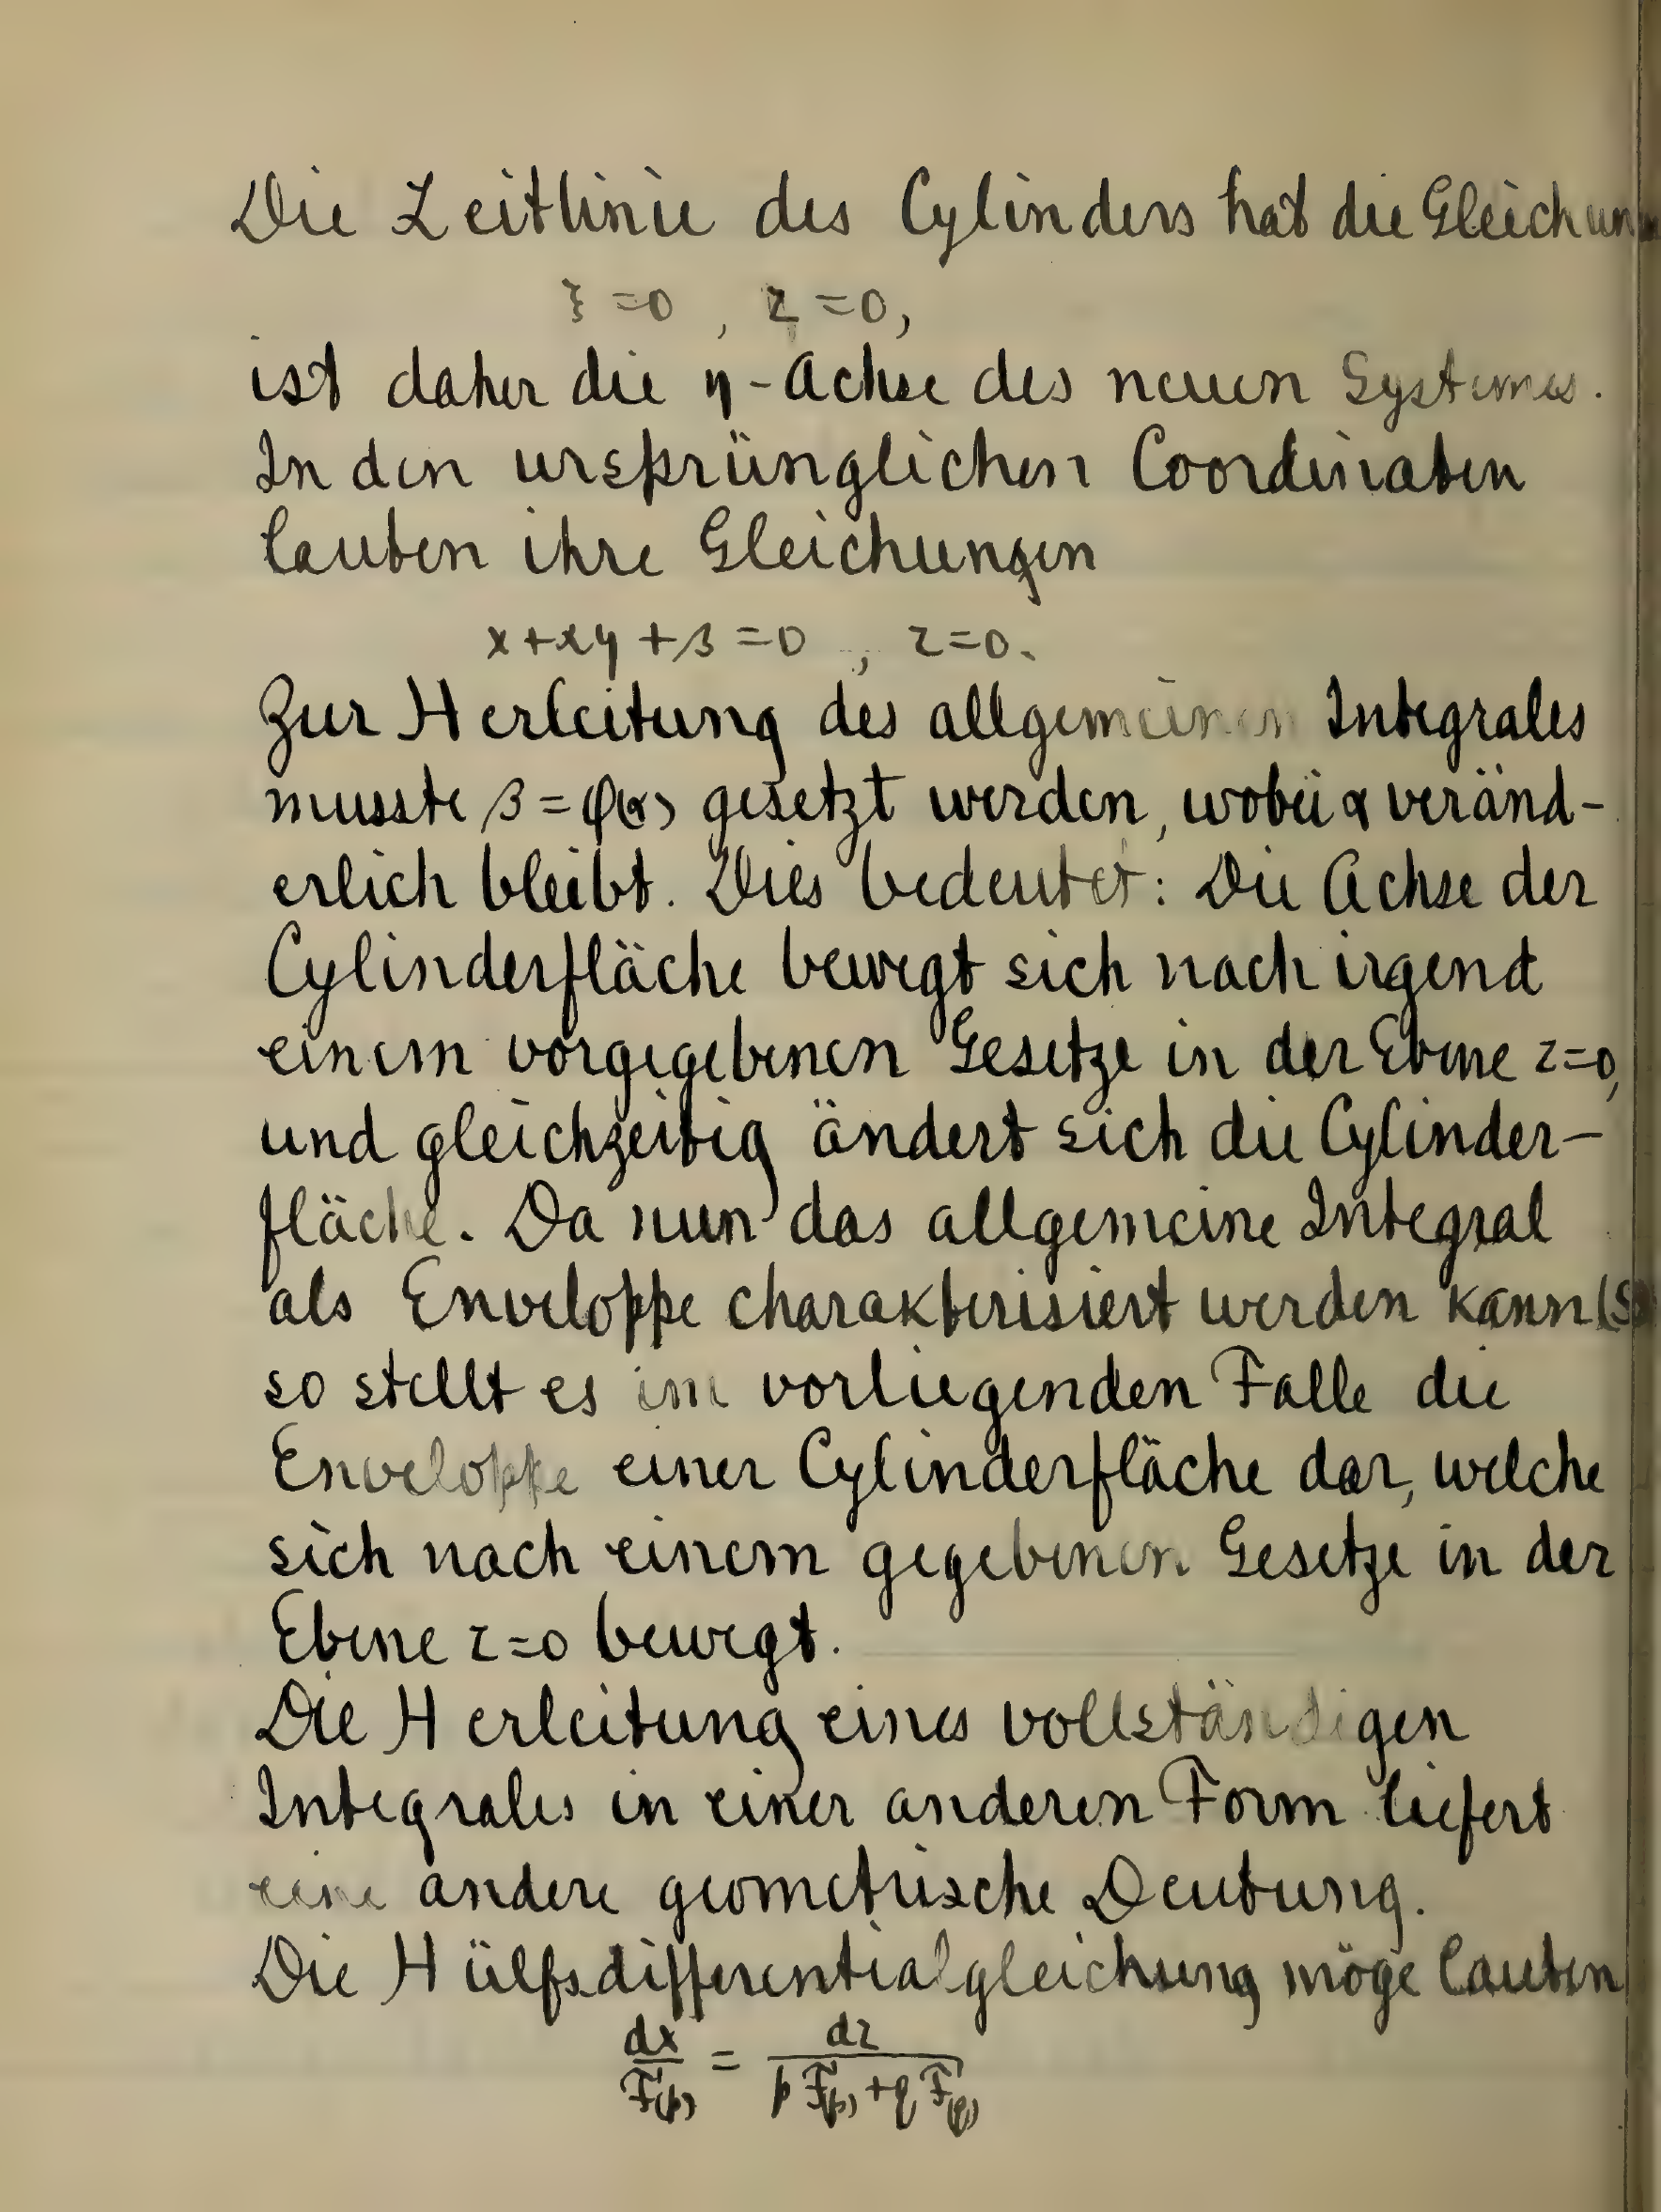 Die Leitlinie des Cylinders hat die Gleichun
ξ = 0 , z = 0,
ist daher die η-Achse des neuen Systemes.
In den ursprünglichen Coordinaten
lauten ihre Gleichungen
x + αy + β = 0 , z = 0.
Zur Herleitung des allgemeinen Integrales
musste β = φ(α) gesetzt werden, wobei α veränd-
erlich bleibt. Dies bedeutet: Die Achse der
Cylinderfläche bewegt sich nach irgend
einem vorgegebenen Gesetze in der Ebene z=0,
und gleichzeitig ändert sich die Cylinder-
fläche. Da nun das allgemeine Integral
als Enveloppe charakterisiert werden kann
so stellt es im vorliegenden Falle die
Enveloppe einer Cylinderfläche dar, welche
sich nach einem gegebenen Gesetze in der
Ebene z=0 bewegt.
Die Herleitung eines vollständigen
Integrales in einer anderen Form liefert
eine andere geometrische Deutung.
Die Hülfsdifferentialgleichung möge lauten
dx/F'(p) = dz/(p F'(p) + q F'(q))